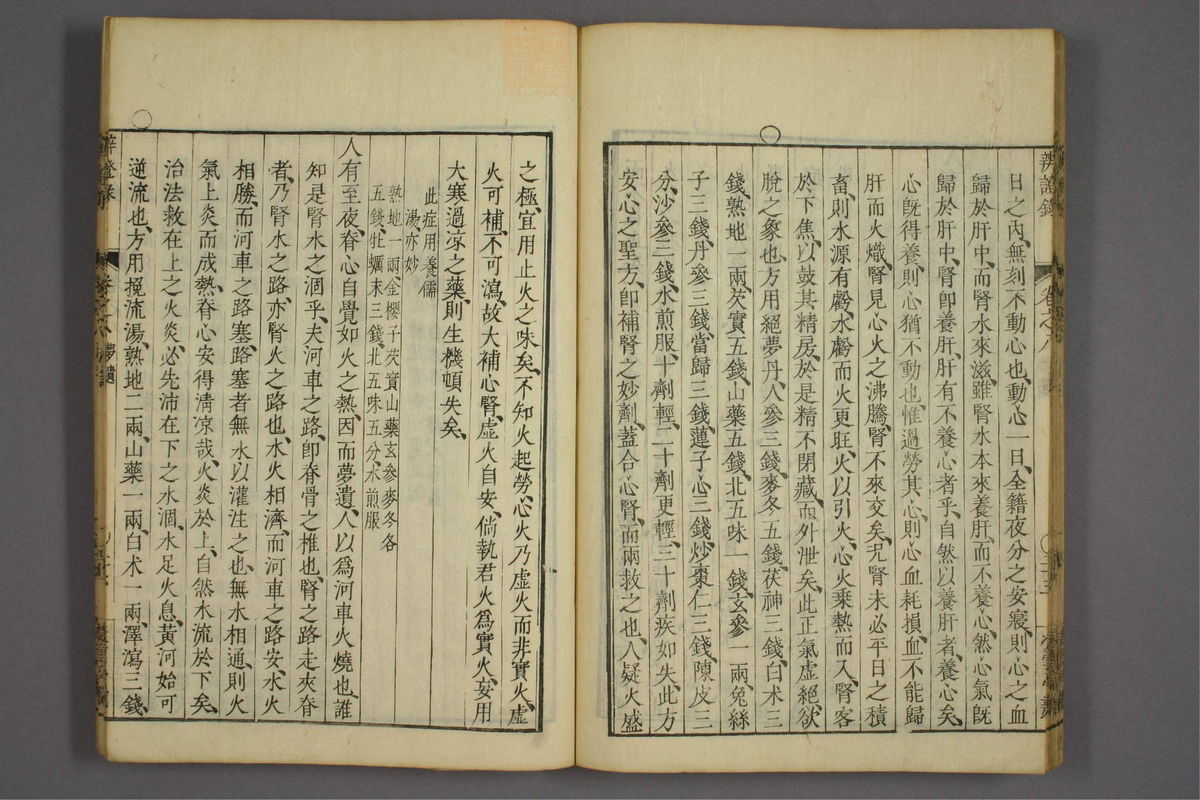 辨證錄
卷之八
日之內、無刻不動心也、動心一日、全籍夜分之安寢、則心之血
歸於肝中、而腎水來滋、雖腎水本來養肝、而不養心、然心氣既
歸於肝中、腎卽養肝、肝有不養心者乎、自然以養肝者、養心矣、
心既得養、則心猶不動也、惟過勞其心、則心血耗損、血不能歸
肝、而火熾、腎見心火之沸騰、腎不來交矣、况腎未必平日之積
畜、則水源有虧、水虧而火更旺、火以引火、心火乗熱而入腎客
於下焦、以鼓其精房、於是精不閉藏、而外泄矣、此正氣虛絕、欲
脫之象也、方用絕夢丹、人參三錢、麥冬五錢、茯神三錢、白术三
錢、熟地一兩、芡實五錢、山藥五錢、北五味一錢、玄參一兩、兔絲
子三錢、丹參三錢、當歸三錢、蓮子心三錢、炒棗仁三錢、陳皮三
分、沙參三錢、水煎服、十劑輕、二十劑更輕、三十劑疾如失、此方
安心之聖方、卽補腎之妙劑、蓋合心腎、而兩救之也、人疑火盛
之極、宜用止火之味矣、不知火起勞心、火乃虛火、而非實火、虛
火可補、不可瀉、故大補心腎、虛火自安、倘執君火爲實火、妄用
大寒過凉之藥、則生機頓失矣、
此症用養儒
湯、亦妙
熟地一兩、金櫻子芡實山藥玄參麥冬各
五錢、牡蠣末三錢、北五味五分、水煎服
人有至夜、脊心自覺如火之熱、因而夢遺、人以爲河車火燒也、誰
知是腎水之涸乎、夫河車之路、卽脊骨之椎也、腎之路走夾脊
者、乃腎水之路、亦腎火之路也、水火相濟、而河車之路安、水火
相勝、而河車之路塞、路塞者無水以灌注之也、無水相通、則火
氣上炎而成熱、脊心安得清凉哉、火炎於上、自然水流於下矣、
治法救在上之火炎、必先沛在下之水涸、水足火息、黃河始可
逆流也、方用挽流湯、熟地二兩、山藥一兩、白术一兩、澤瀉三錢、
辨證錄
卷之八
夢遺